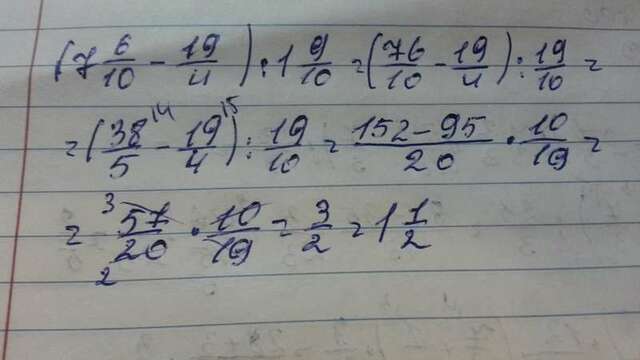 (7 6/10 - 19/4) : 1 9/10 = (76/10 - 19/4) : 19/10 =
= (38/5 ^14 - 19/4 ^15) : 19/10 = (152-95)/20 · 10/19 =
= 3 57/20 2 · 10/19 = 3/2 = 1 1/2